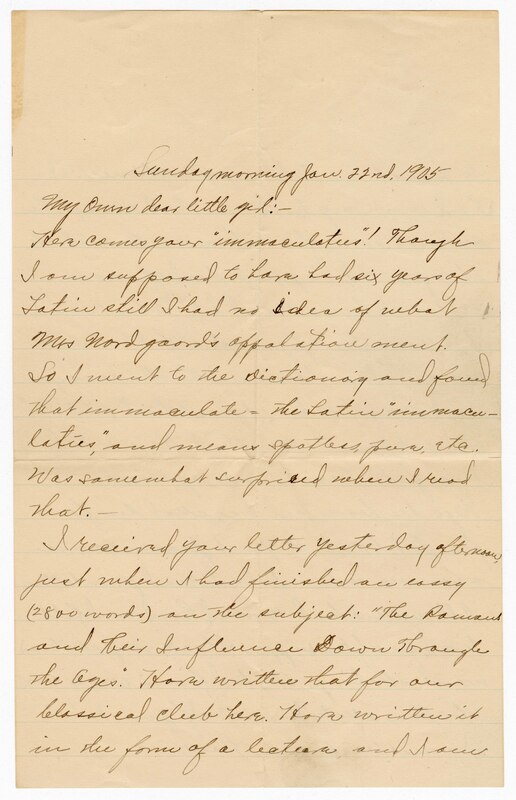 Sunday morning Jan. 22nd, 1905
My Own dear little girl:-
Here comes your "immaculaties"! Though
I am supposed to have had six years of
Latin still I had no idea of what
Mrs Nordgaard's appalation ment.
So I went to the dictionary and found
that immaculate = the Latin "immacu-
laties," and means spotless, pure, etc.
Was somewhat surprized when I read
that.-
I received your letter yesterday afternoon,
just when I had finished an essay
(2800 words) on the subject: "The Romans
and their Influence Down Through
the Ages". Have written that for our
Classical club here. Have written it
in the form of a lecture and I am